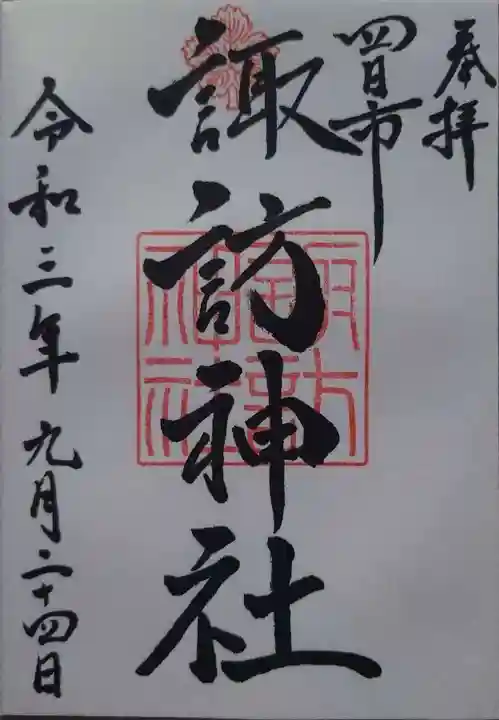 奉拝
四日市
諏訪神社
令和三年九月二十四日